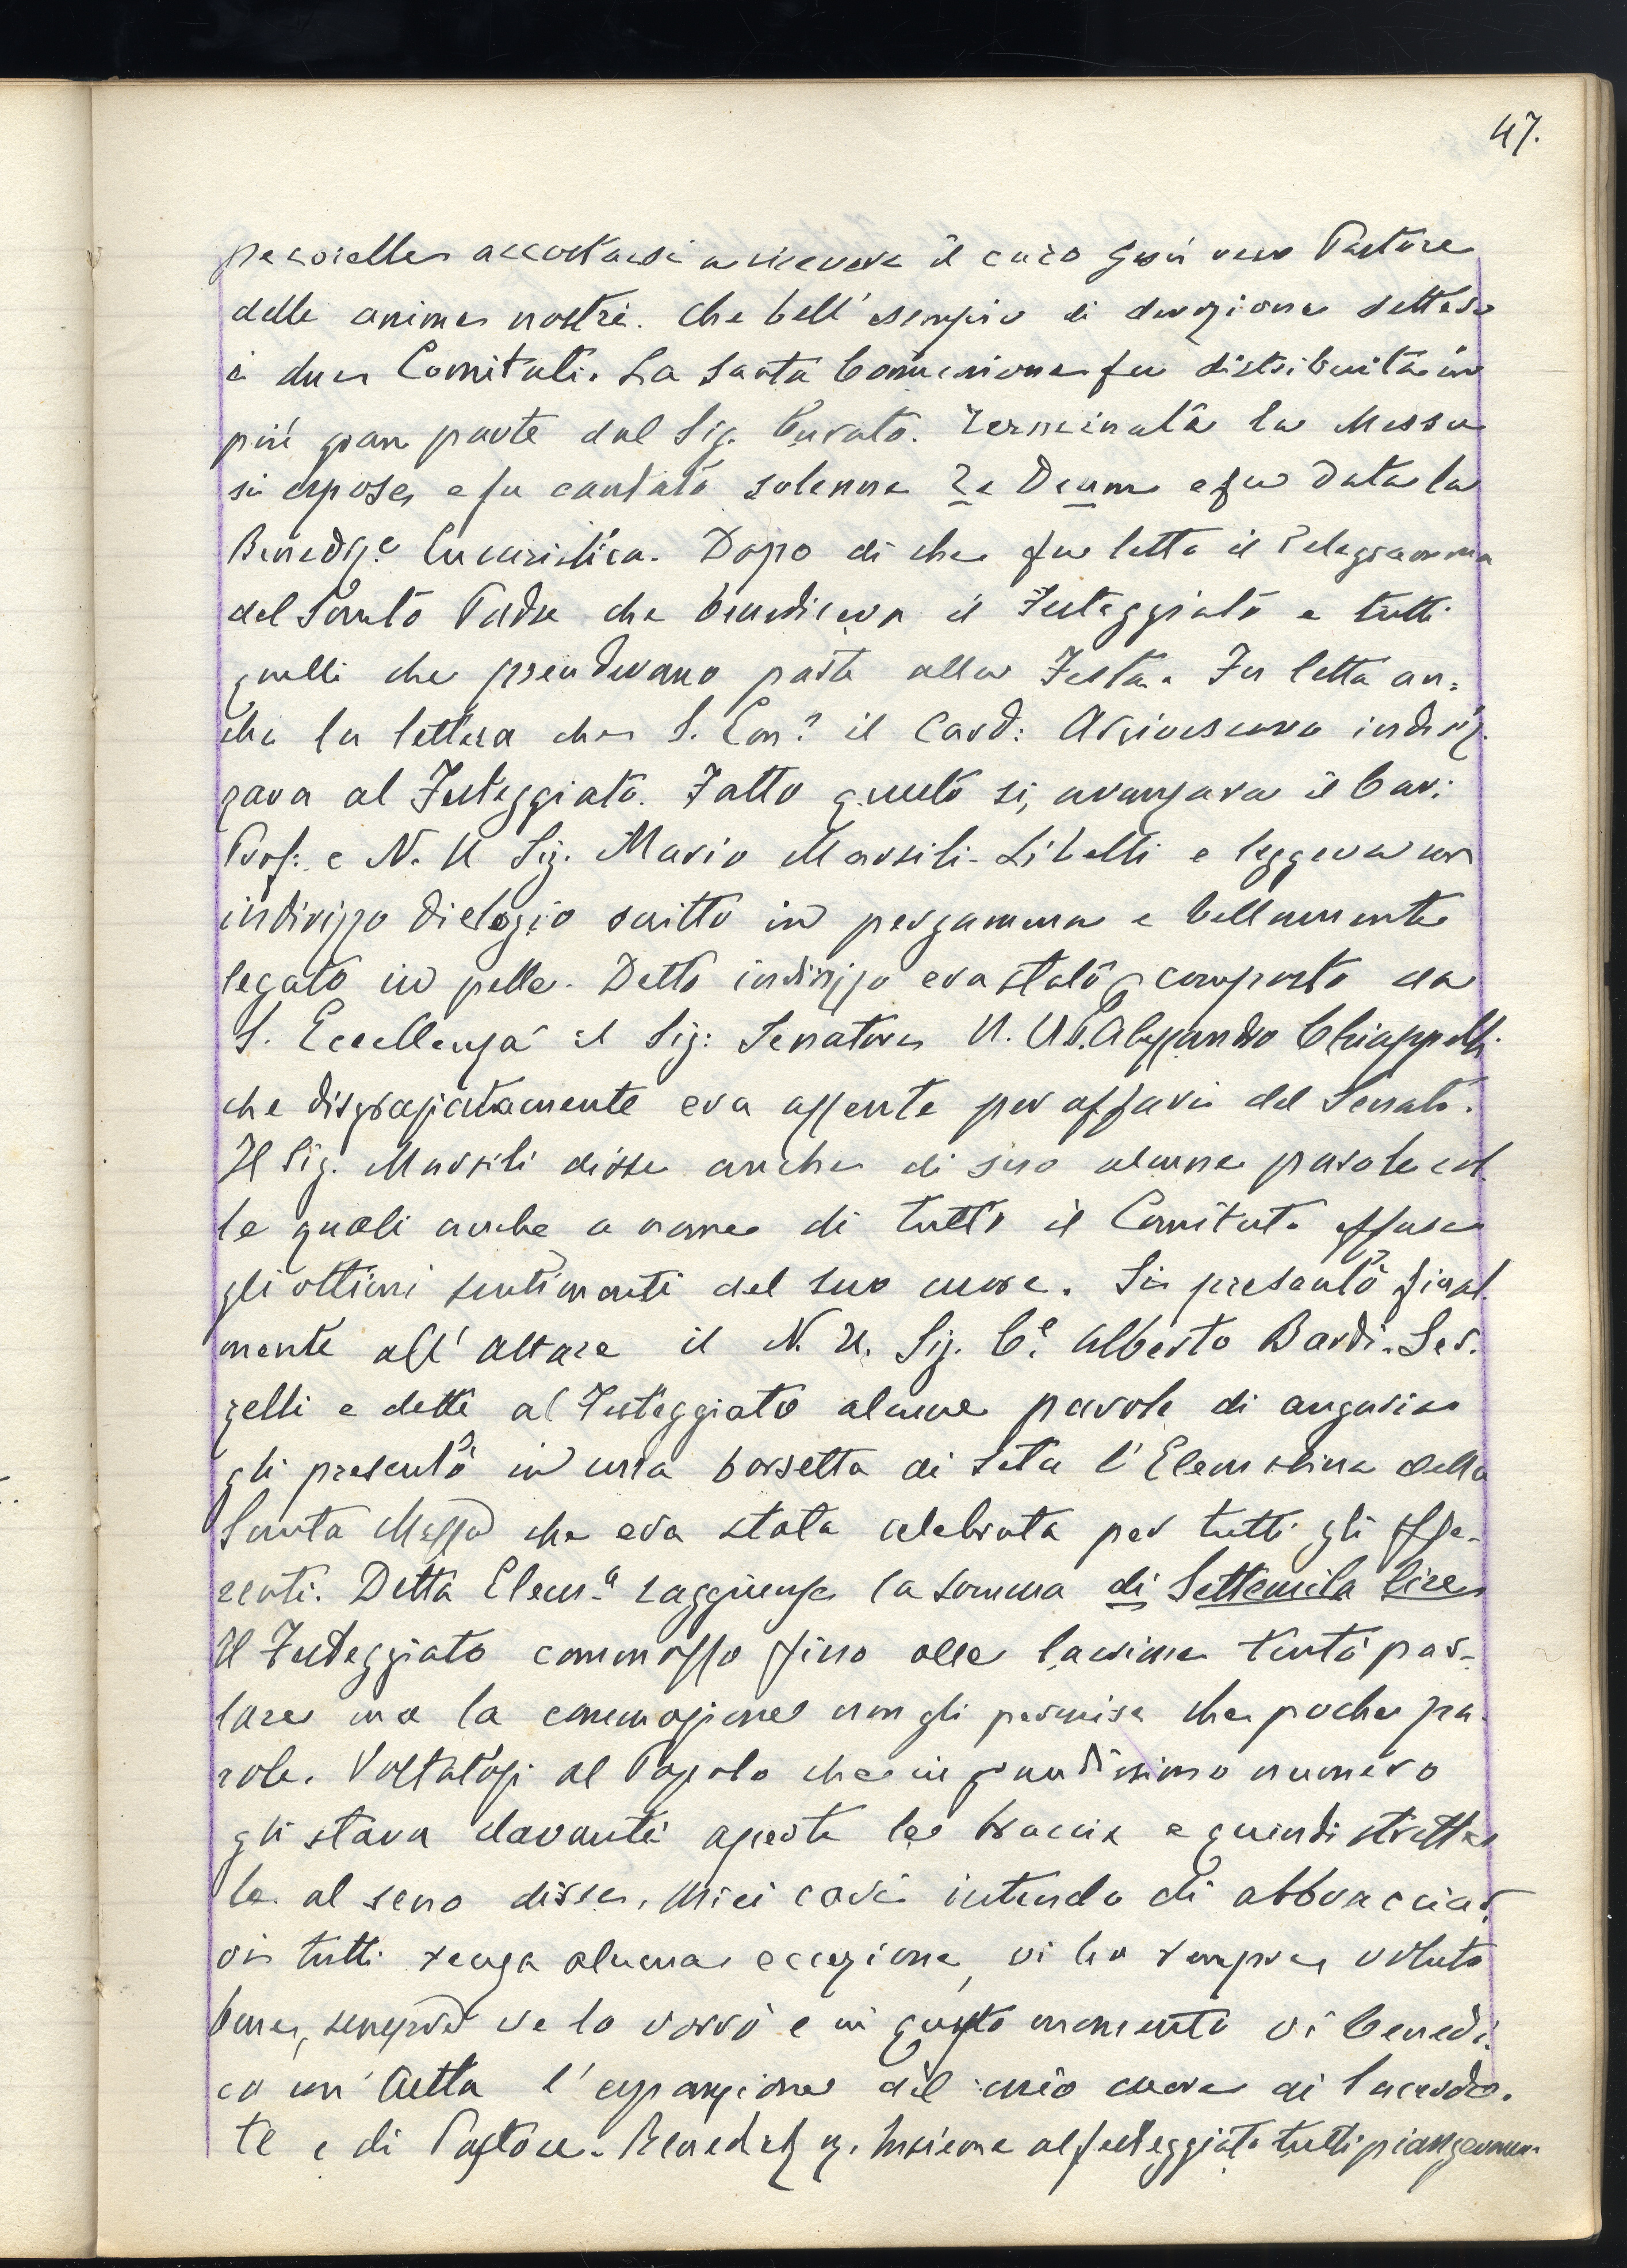 47.
pecorelle accostarsi a ricevere il caro Gesù vero Pastore
delle anime nostre. Che bell' esempio di devozione dettero
i due Comitati. La Santa Comunione fu distribuita in
più gran parte dal Sig. Curato. Terminata la Messa
si espose e fu cantato solenne Te Deum e fu data la
Benedize Eucaristica. Dopo di che fu letto il Telegramma
del Santo Padre che benediceva il Festeggiato e tutti
quelli che prendevano parte alla Festa. Fu letta an=
che la lettera che S. Em? il Card: Arcivescovo indiriz.
zava al Festeggiato. Fatto questo si, avanzava il Cav:
Prof: e N. U Sig. Mario Marsili-Libelli e leggeva un
indirizzo di elogio scritto in pergamena e bellamente
legato in pelle. Detto indirizzo era stato composto da
S. Eccellenza il Sig: Senatore N. U. Alessandro Chiappelli
che disgraziatamente era assente per affari del Senato.
Il Sig. Marsili disse anche di suo alcune parole col
le quali anche a nome di tutto il Comitato effuse
gli ottimi sentimenti del suo cuore. Si presentò final.
mente all' altare il N. U. Sig. Ce Alberto Bardi-Ser.
zelli e dette al Festeggiato alcune parole di augurio
gli presentò in una borsetta di seta l'Elemosina della
Santa Messa che era stata celebrata per tutti gli offe-
renti. Detta Elemna raggiunse la somma di Settemila lire
Il Festeggiato commosso fino alle lacrime tentò par-
lare ma la commozione non gli permise che poche pa.
role. Voltatosi al Popolo che in grandissimo numero
gli stava davanti aperte le braccia e quindi strette
le al seno disse, Miei cari intendo di abbracciar.
vi tutti senza alcuna eccezione, vi ho sempre voluto
bene, sempre ve lo vorrò e in questo momento vi benedi.
co con tutta l'espansione del mio cuore di Sacerdo.
te e di Pastore. Insieme al festeggiato tutti piangevano.